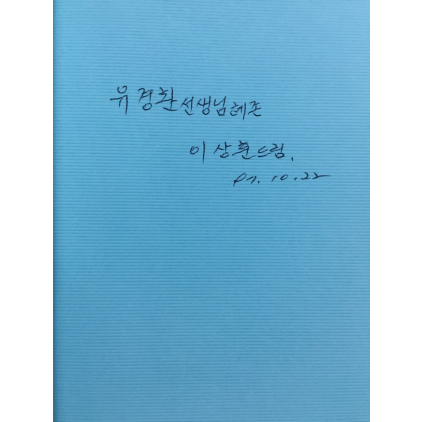 유경환 선생님 혜존
이상훈 드림.
97.10.22